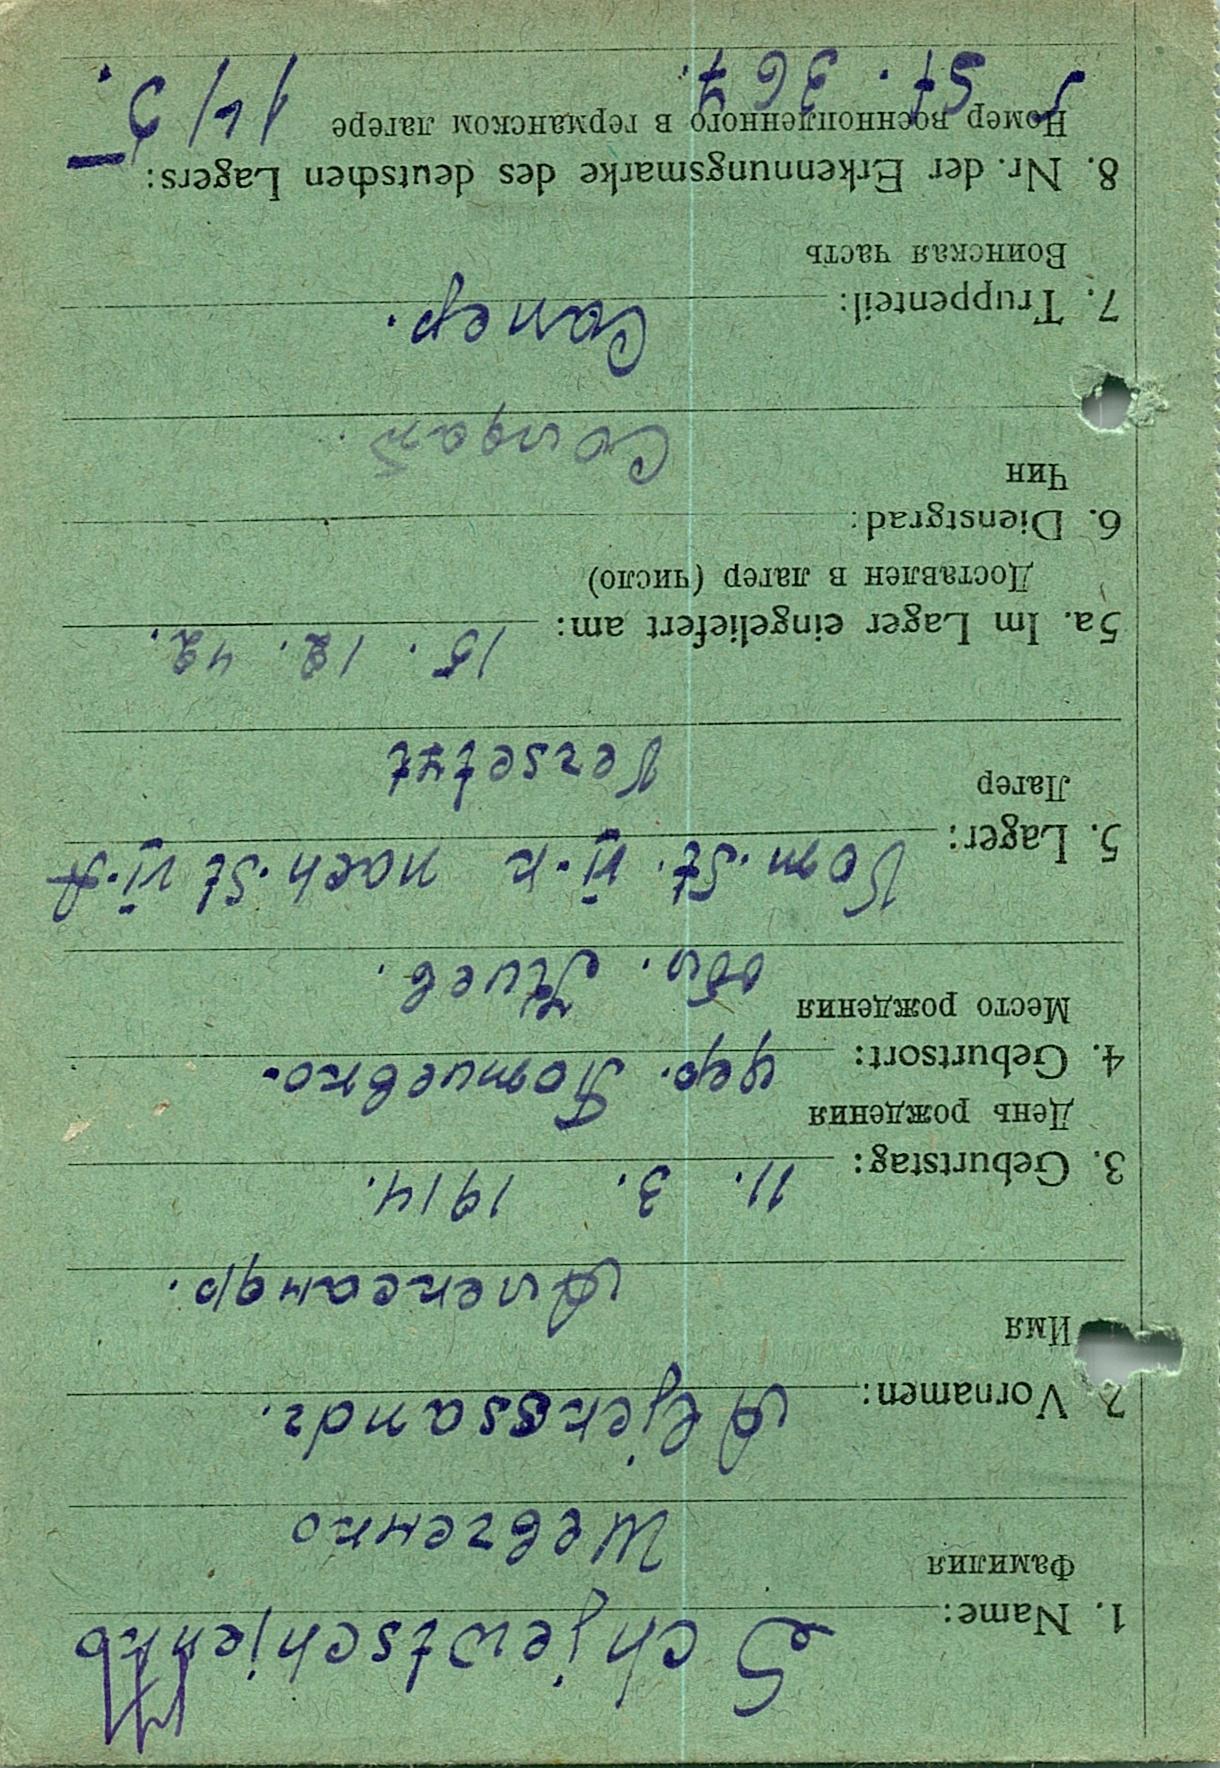 1. Name: Schjewtschjenko
Фамилия
Шевченко
2. Vornamen: Aljekssandr.
Имя
Александр.
3. Geburtstag: 11. 3. 1914.
День рождения
4. Geburtsort: дер.
Место рождения
обл. Киев.
5. Lager: Vom. St. VI-K nach. St VI-A
Лагер
Versetzt
5a. Im Lager eingeliefert am: 15. 12. 42.
Доставлен в лагер (число)
6. Dienstgrad:
Чин
Солдат.
7. Truppenteil: Сапер.
Воинская часть
8. Nr. der Erkennungsmarke des deutschen Lagers:
Номер военнопленного в германском лагере
St. 367.